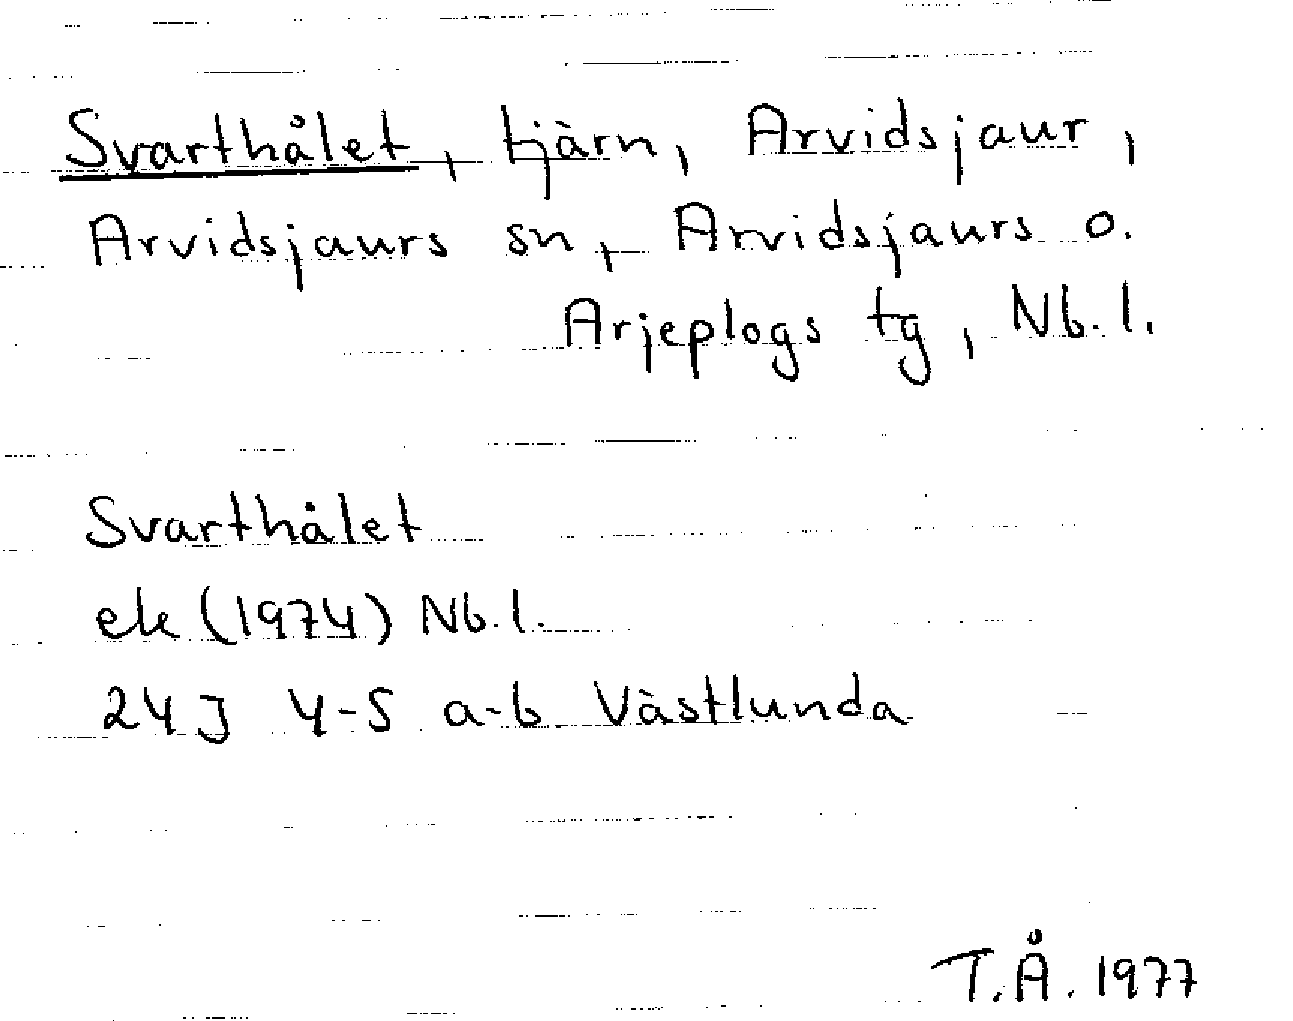 Svarthålet, tjärn, Arvidsjaur,
Arvidsjaurs sn, Arvidsjaurs o.
Arjeplogs tg, Nb. l.
Svarthålet
ek (1974) Nb. l.
24J 4-5 a-b Västlunda
T.Å. 1977